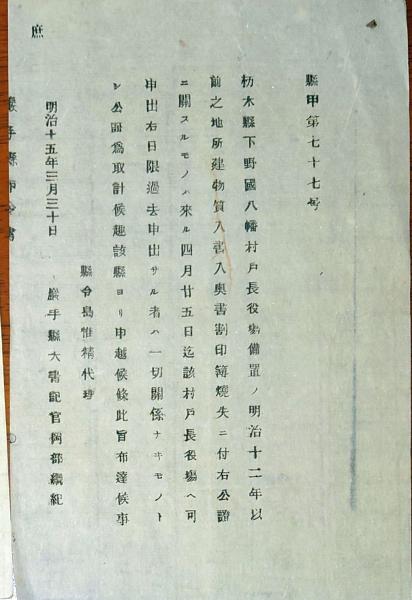 縣甲第七十七号
栃木縣下野國八幡村戸長役塲備置ノ明治十二年以
前之地所建物質入書入奥書割印簿燒失ニ付右公證
ニ關スルモノハ來ル四月廿五日迄該村戸長役塲ヘ可
申出右日限過去申出サル者ハ一切關係ナキモノト
シ公證為取計候趣該縣ヨリ申越候條此旨布達候事
明治十五年三月三十日
縣令島惟精代理
巖手縣大書記官岡部綱紀
庶
巖手縣